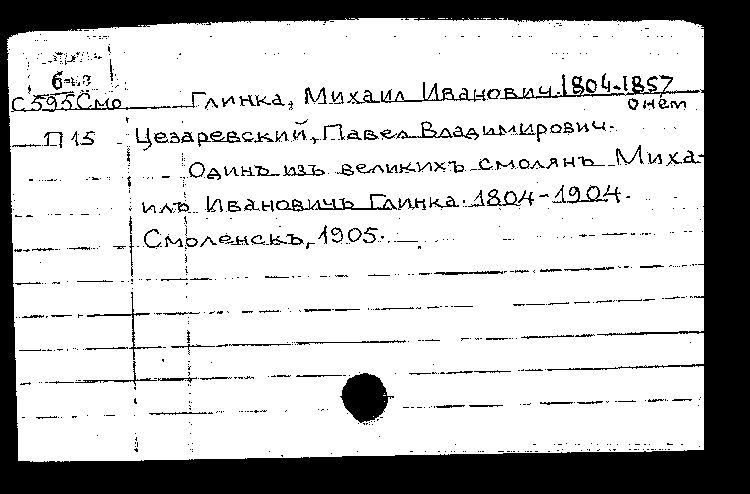 б-ка
С595Смо Глинка, Михаил Иванович. 1804-1857
о нем
П15 Цезаревский, Павел Владимирович.
Одинъ изъ великихъ смолянъ Миха-
илъ Ивановичъ Глинка. 1804-1904.
Смоленскъ, 1905.